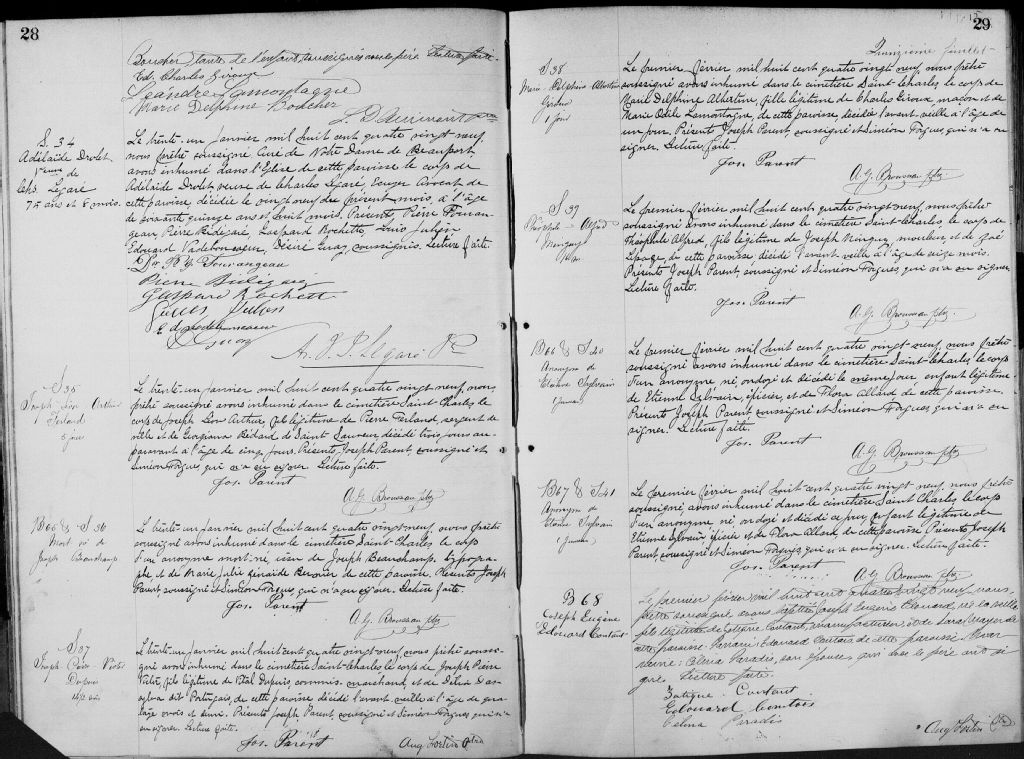 28
Boucher tante de l'enfant, soussignés avec le père. Lecture faite.
Ed. Charles Giroux
Léandre Lamontagne
Marie Delphine Boucher
S. 34
Adélaide Drolet
Veuve de
Chs. Légaré
75 ans et 8 mois.
Le trente-un janvier mil huit cent quatre vingt neuf,
nous prêtre soussigné Curé de Notre Dame de Beauport,
avons inhumé dans l'Eglise de cette paroisse le corps de
Adélaide Drolet veuve de Charles Légaré, Ecuyer Avocat de
cette paroisse, décédée le vingt neuf du présent mois, à l'âge
de soixante quinze ans et huit mois. Présents Pierre
Pierre Gaspard Rochette, Louis Julien
Edouard soussignés. Lecture faite
Gaspard Rochett
Louis Julien
S 35
Joseph Léon Arthur
Ferland
5 jours
Le trente-un janvier mil huit cent quatre vingt neuf, nous
prêtre soussigné avons inhumé dans le cimetière Saint-Charles le
corps de Joseph Léon Arthur, fils légitime de Pierre Ferland, sergent de
ville et de Georgiana Bédard de Saint Sauveur décédé trois jours au-
paravant à l'âge de cinq jours. Présents, Joseph Parent, soussigné et
Siméon Forgues qui n'a su signer. Lecture faite.
Jos. Parent
A. G. Brousseau ptre
B 65 & S 36
Mort né de
Joseph Beauchamp
Le trente-un janvier mil huit cent quatre vingt neuf, nous prêtre
soussigné avons inhumé dans le cimetière Saint-Charles le corps
d'un anonyme mort-né, issu de Joseph Beauchamp, typogra-
phe, et de Marie Julie Zénaide Bernier de cette paroisse. Présents Joseph
Parent, soussigné et Siméon Forgues, qui n'a su signer. Lecture faite.
Jos. Parent
A. G. Brousseau ptre
S 37
Joseph Pierre Vital
Dupuis
4 1/2 ans
Le trente un janvier mil huit cent quatre vingt neuf, nous prêtre soussi-
gné avons inhumé dans le cimetière Saint-Charles le corps de Joseph Pierre
Vital, fils légitime de Vital Dupuis, commis marchand, et de Délia Das-
sylva dit Portugais, de cette paroisse décédé l'avant veille à l'âge de qua-
tre ans et demi. Présents Joseph Parent, soussigné et Siméon Forgues qui n'a
su signer. Lecture faite.
Jos. Parent
Aug. Fortin Ptre
29
Quinzième feuillet
S 38
Marie Delphine Albertine
Giroux
1 jour
Le premier février mil huit cent quatre vingt neuf, nous prêtre
soussigné avons inhumé dans le cimetière Saint-Charles, le corps de
Marie Delphine Albertine, fille légitime de Charles Giroux, maçon et de
Marie Odile Lamontagne, de cette paroisse, décédée l'avant-veille à l'âge
d'un jour. Présents Joseph Parent, soussigné et Siméon Forgues qui n'a su
signer. Lecture faite.
Jos. Parent
A. G. Brousseau ptre
S 39
Théophile Alfred
Minguy
16 m.
Le premier février mil huit cent quatre vingt neuf, nous prêtre
soussigné avons inhumé dans le cimetière Saint-Charles, le corps de
Théophile Alfred, fils légitime de Joseph Minguy, mouleur, et de Zoé
Lepage, de cette paroisse, décédé l'avant-veille à l'âge de seize mois.
Présents Joseph Parent, soussigné et Siméon Forgues, qui n'a su signer.
Lecture faite.
Jos. Parent
A. G. Brousseau ptre
B 66 & S 40
Anonyme de
Etienne Sylvain
1 jour
Le premier février mil huit cent quatre vingt neuf, nous prêtre
soussigné avons inhumé dans le cimetière Saint-Charles le corps
d'un anonyme, né, ondoyé et décédé le même jour, enfant légitime
de Etienne Sylvain, épicier, et de Flora Allard de cette paroisse.
Présents Joseph Parent, soussigné et Siméon Forgues qui n'a su
signer. Lecture faite.
Jos. Parent
A. G. Brousseau ptre
B 67 & S 41
Anonyme de
Etienne Sylvain
1 jour
Le premier février mil huit cent quatre vingt neuf, nous prêtre
soussigné, avons inhumé dans le cimetière Saint Charles le corps
d'un anonyme, né, ondoyé et décédé ce jour, enfant légitime de
Etienne Sylvain, épicier et de Flora Allard, de cette paroisse. Présents Joseph
Parent, soussigné et Siméon Forgues, qui n'a su signer. Lecture faite.
Jos. Parent
A. G. Brousseau ptre
B 68
Joseph Eugène
Edouard Contant
Le premier février mil huit cent quatre vingt neuf, nous,
prêtre soussigné, avons baptisé Joseph Eugène Edouard, né la veille,
fils légitime de Contant, manufacturier, et de
cette paroisse. Parrain: Edouard Contois de cette paroisse Mar-
raine: Célina Paradis, son épouse, qui avec le père ont si-
gné. Lecture faite.
Contant
Edouard Contois
Célina Paradis
Aug. Fortin Ptre